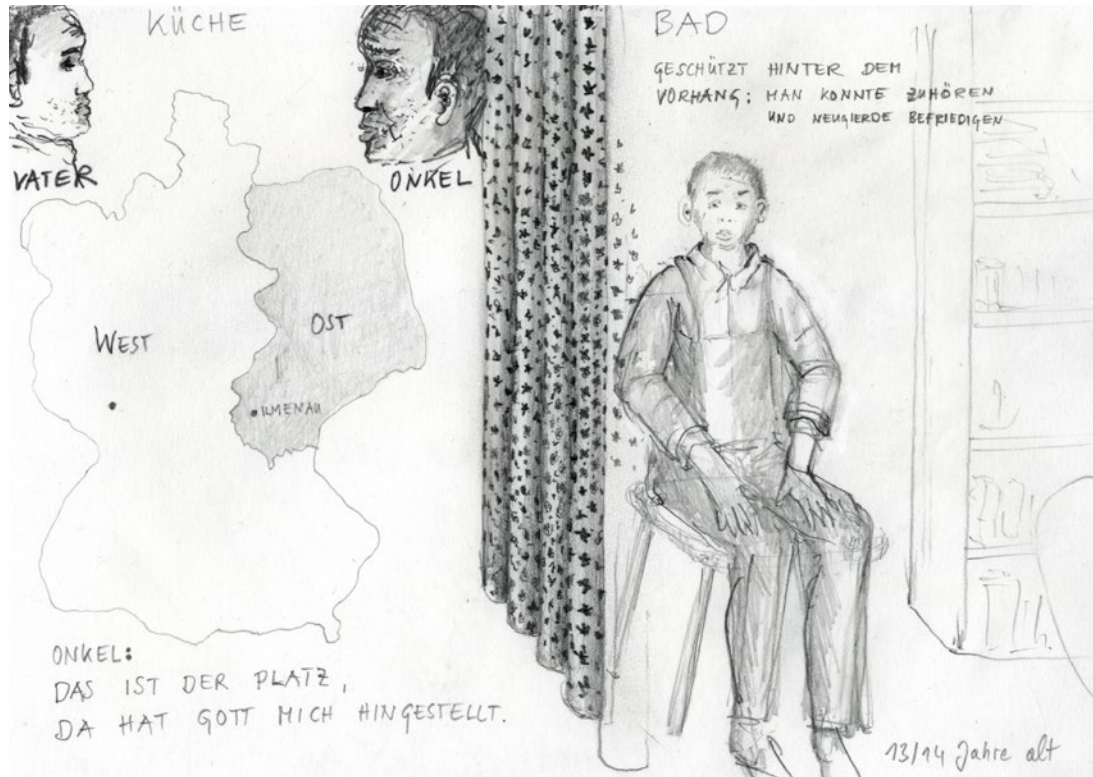 KÜCHE
VATER
ONKEL
WEST
OST
ILMENAU
ONKEL:
DAS IST DER PLATZ,
DA HAT GOTT MICH HINGESTELLT.
BAD
GESCHÜTZT HINTER DEM
VORHANG: MAN KONNTE ZUHÖREN
UND NEUGIERDE BEFRIEDIGEN
13/14 Jahre alt